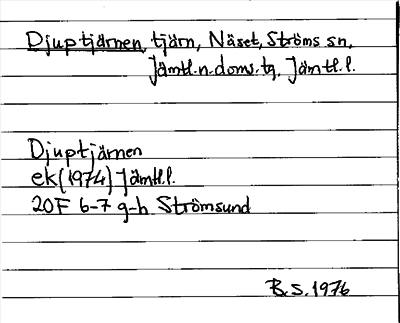 Djuptjärnen, tjärn, Näset, Ströms sn,
Jämtl.n.doms.tg, Jämtl.l.
Djuptjärnen
ek(1974) Jämtl.l.
20F 6-7 g-h Strömsund
B.S. 1976